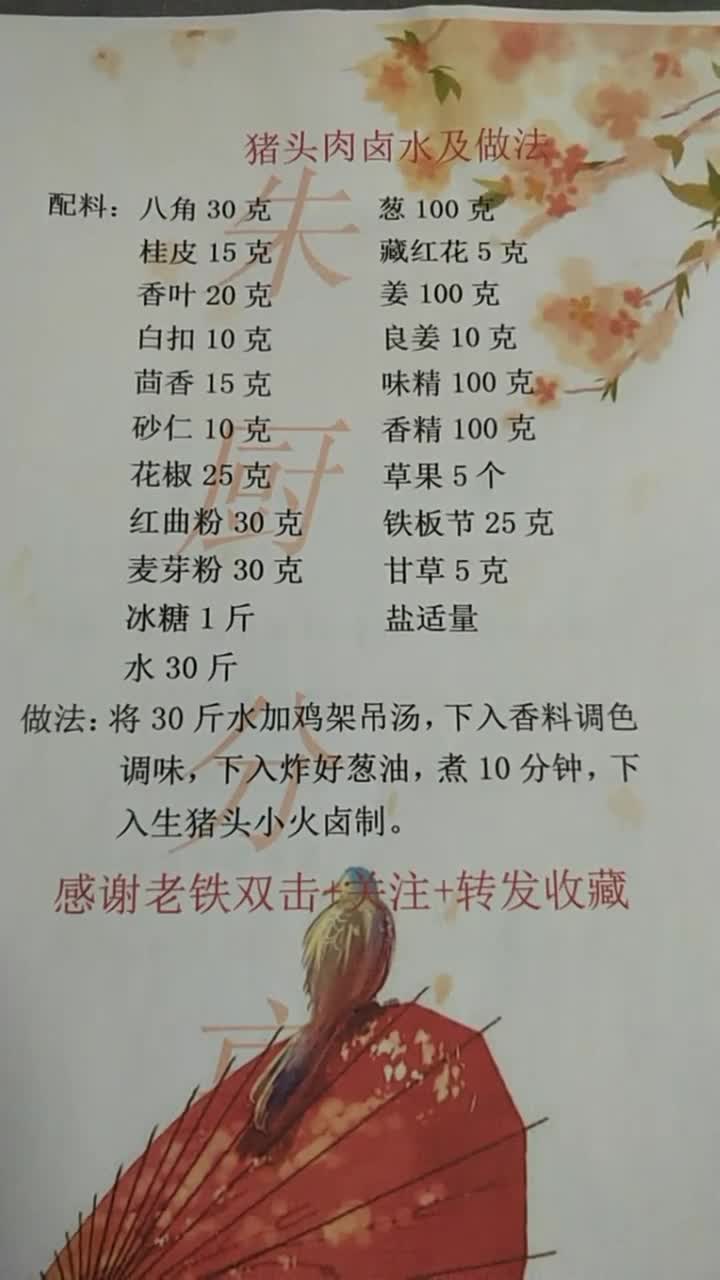 猪头肉卤水及做法
配料：八角 30 克 葱 100 克
桂皮 15 克 藏红花 5 克
香叶 20 克 姜 100 克
白扣 10 克 良姜 10 克
茴香 15 克 味精 100 克
砂仁 10 克 香精 100 克
花椒 25 克 草果 5 个
红曲粉 30 克 铁板节 25 克
麦芽粉 30 克 甘草 5 克
冰糖 1 斤 盐适量
水 30 斤
做法：将 30 斤水加鸡架吊汤，下入香料调色
调味，下入炸好葱油，煮 10 分钟，下
入生猪头小火卤制。
感谢老铁双击+关注+转发收藏
朱
厨
分